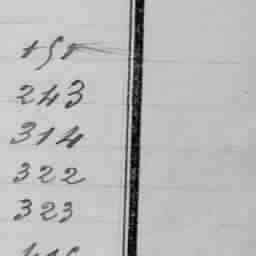 151
243
314
322
323